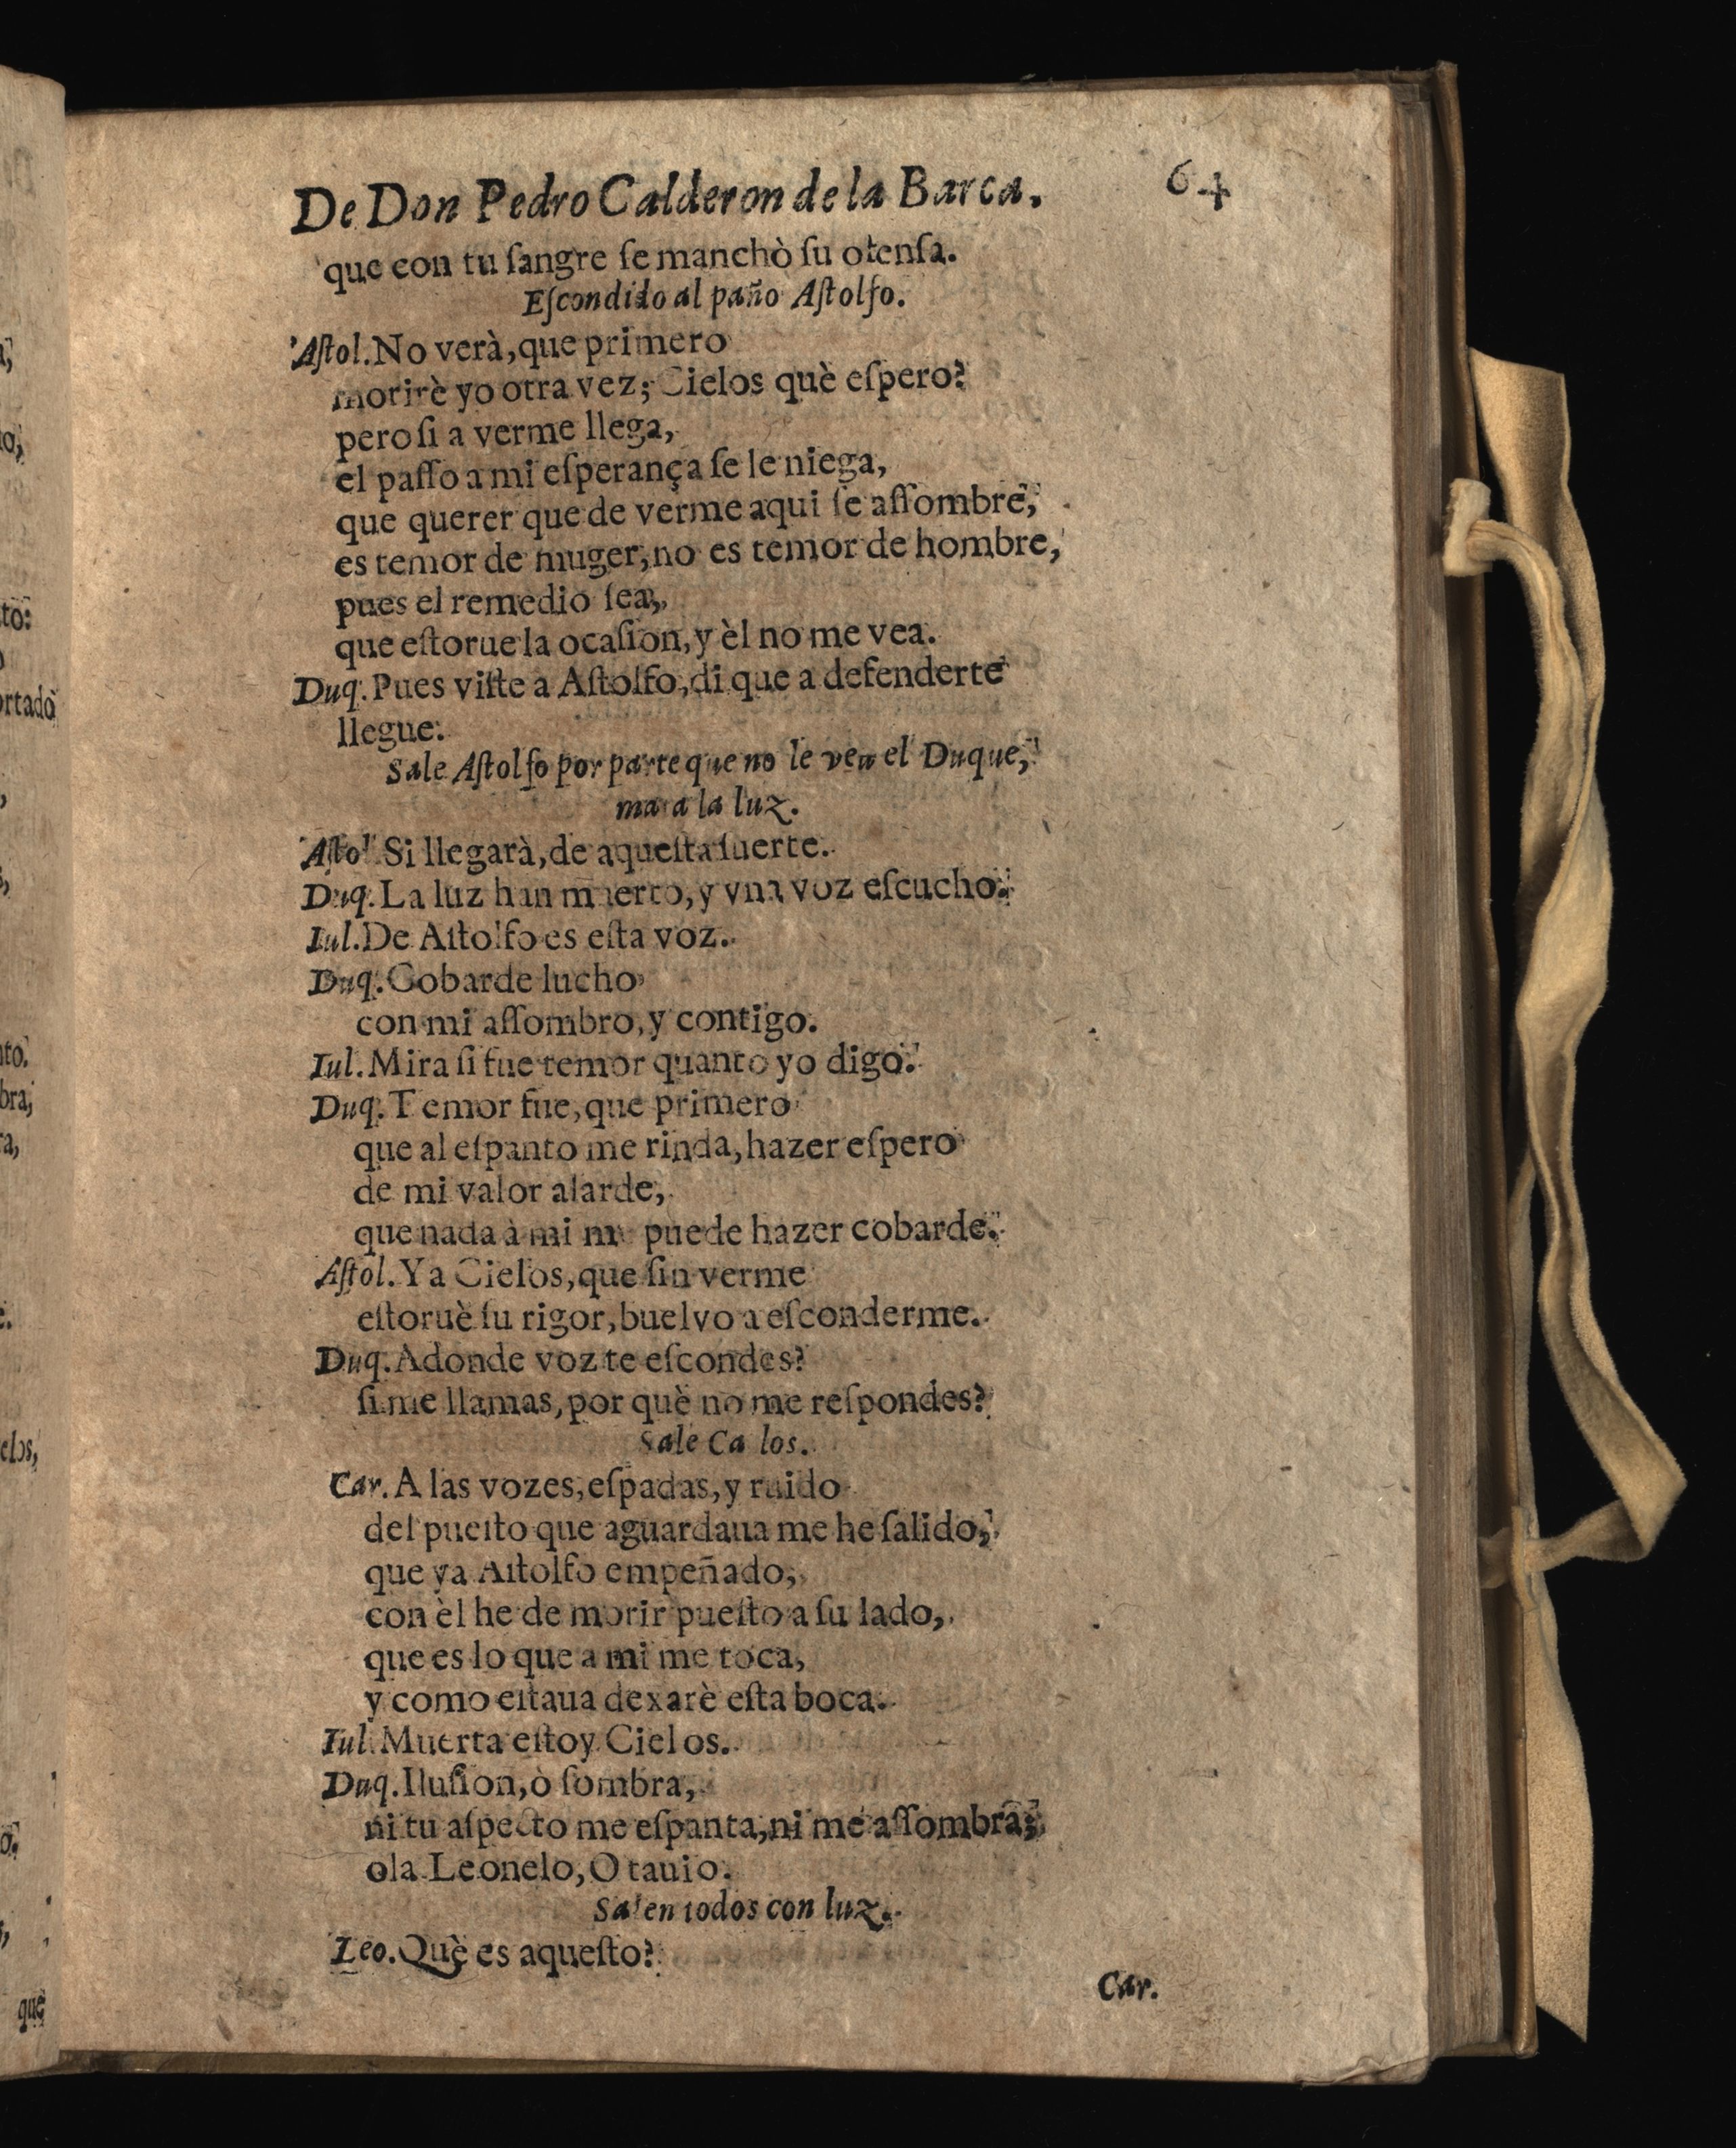 De Don Pedro Calderon de la Barca. 64
que con tu ſangre ſe manchò ſu ofenſa.
Eſcondido al paño Aſtolfo.
Aſtol. No verà, que primero
morirè yo otra vez; Cielos què eſpero?
pero ſi a verme llega,
el paſſo a mi eſperança ſe le niega,
que querer que de verme aqui ſe aſſombre,
es temor de muger, no es temor de hombre,
pues el remedio ſea,
que eſtorue la ocaſion, y èl no me vea.
Duq. Pues viſte a Aſtolfo, di que a defenderte
llegue.
Sale Aſtolfo por parte que no le vea el Duque,
mata la luz.
Aſtol Si llegarà, de aqueſta ſuerte.
Duq. La luz han muerto, y vna voz eſcucho.
Iul. De Aſtolfo es eſta voz.
Duq. Cobarde lucho
con mi aſſombro, y contigo.
Iul. Mira ſi fue temor quanto yo digo.
Duq. Temor fue, que primero
que al eſpanto me rinda, hazer eſpero
de mi valor alarde,
que nada à mi me puede hazer cobarde.
Aſtol. Ya Cielos, que ſin verme
eſtoruè ſu rigor, buelvo a eſconderme.
Duq. Adonde voz te eſcondes?
ſi me llamas, por què no me reſpondes?
Sale Ca los.
Car. A las vozes, eſpadas, y ruido
del pueſto que aguardaua me he ſalido,
que ya Aſtolfo empeñado,
con èl he de morir pueſto a ſu lado,
que es lo que a mi me toca,
y como eſtaua dexarè eſta boca.
Iul. Muerta eſtoy Cielos.
Duq. Iluſion, ò ſombra,
ni tu aſpecto me eſpanta, ni me aſſombra;
ola Leonelo, Otauio.
Salen todos con luz.
Leo. Què es aqueſto?
Car.